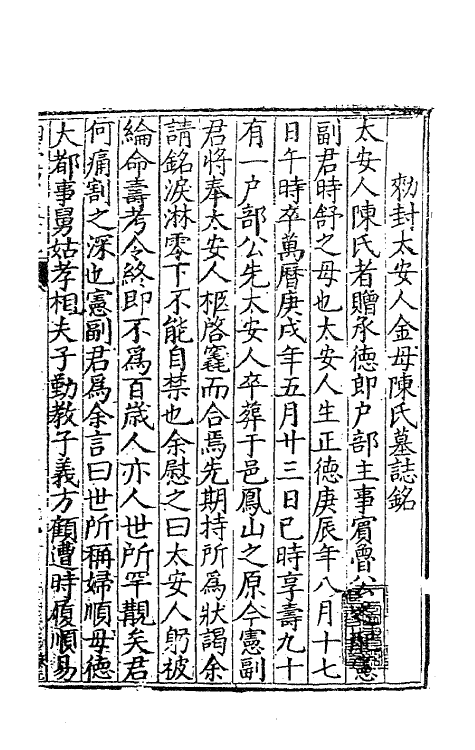 勑封太安人金母陳氏墓誌銘
太安人陳氏者贈承德郎户部主事賓魯公
副君時舒之母也太安人生正德庚辰年八月十七
日午時卒萬曆庚戌年五月廿三日巳時享壽九十
有一户部公先太安人卒葬于邑鳳山之原今憲副
君將奉太安人柩啓窀而合焉先期持所爲狀謁余
請銘淚淋零下不能自禁也余慰之曰太安人躬被
綸命壽考令終即不爲百歳人亦人世所罕覯矣君
何痛割之深也憲副君爲余言曰世所稱婦順母德
大都事舅姑孝相夫子勤教子義方顧遭時履順易